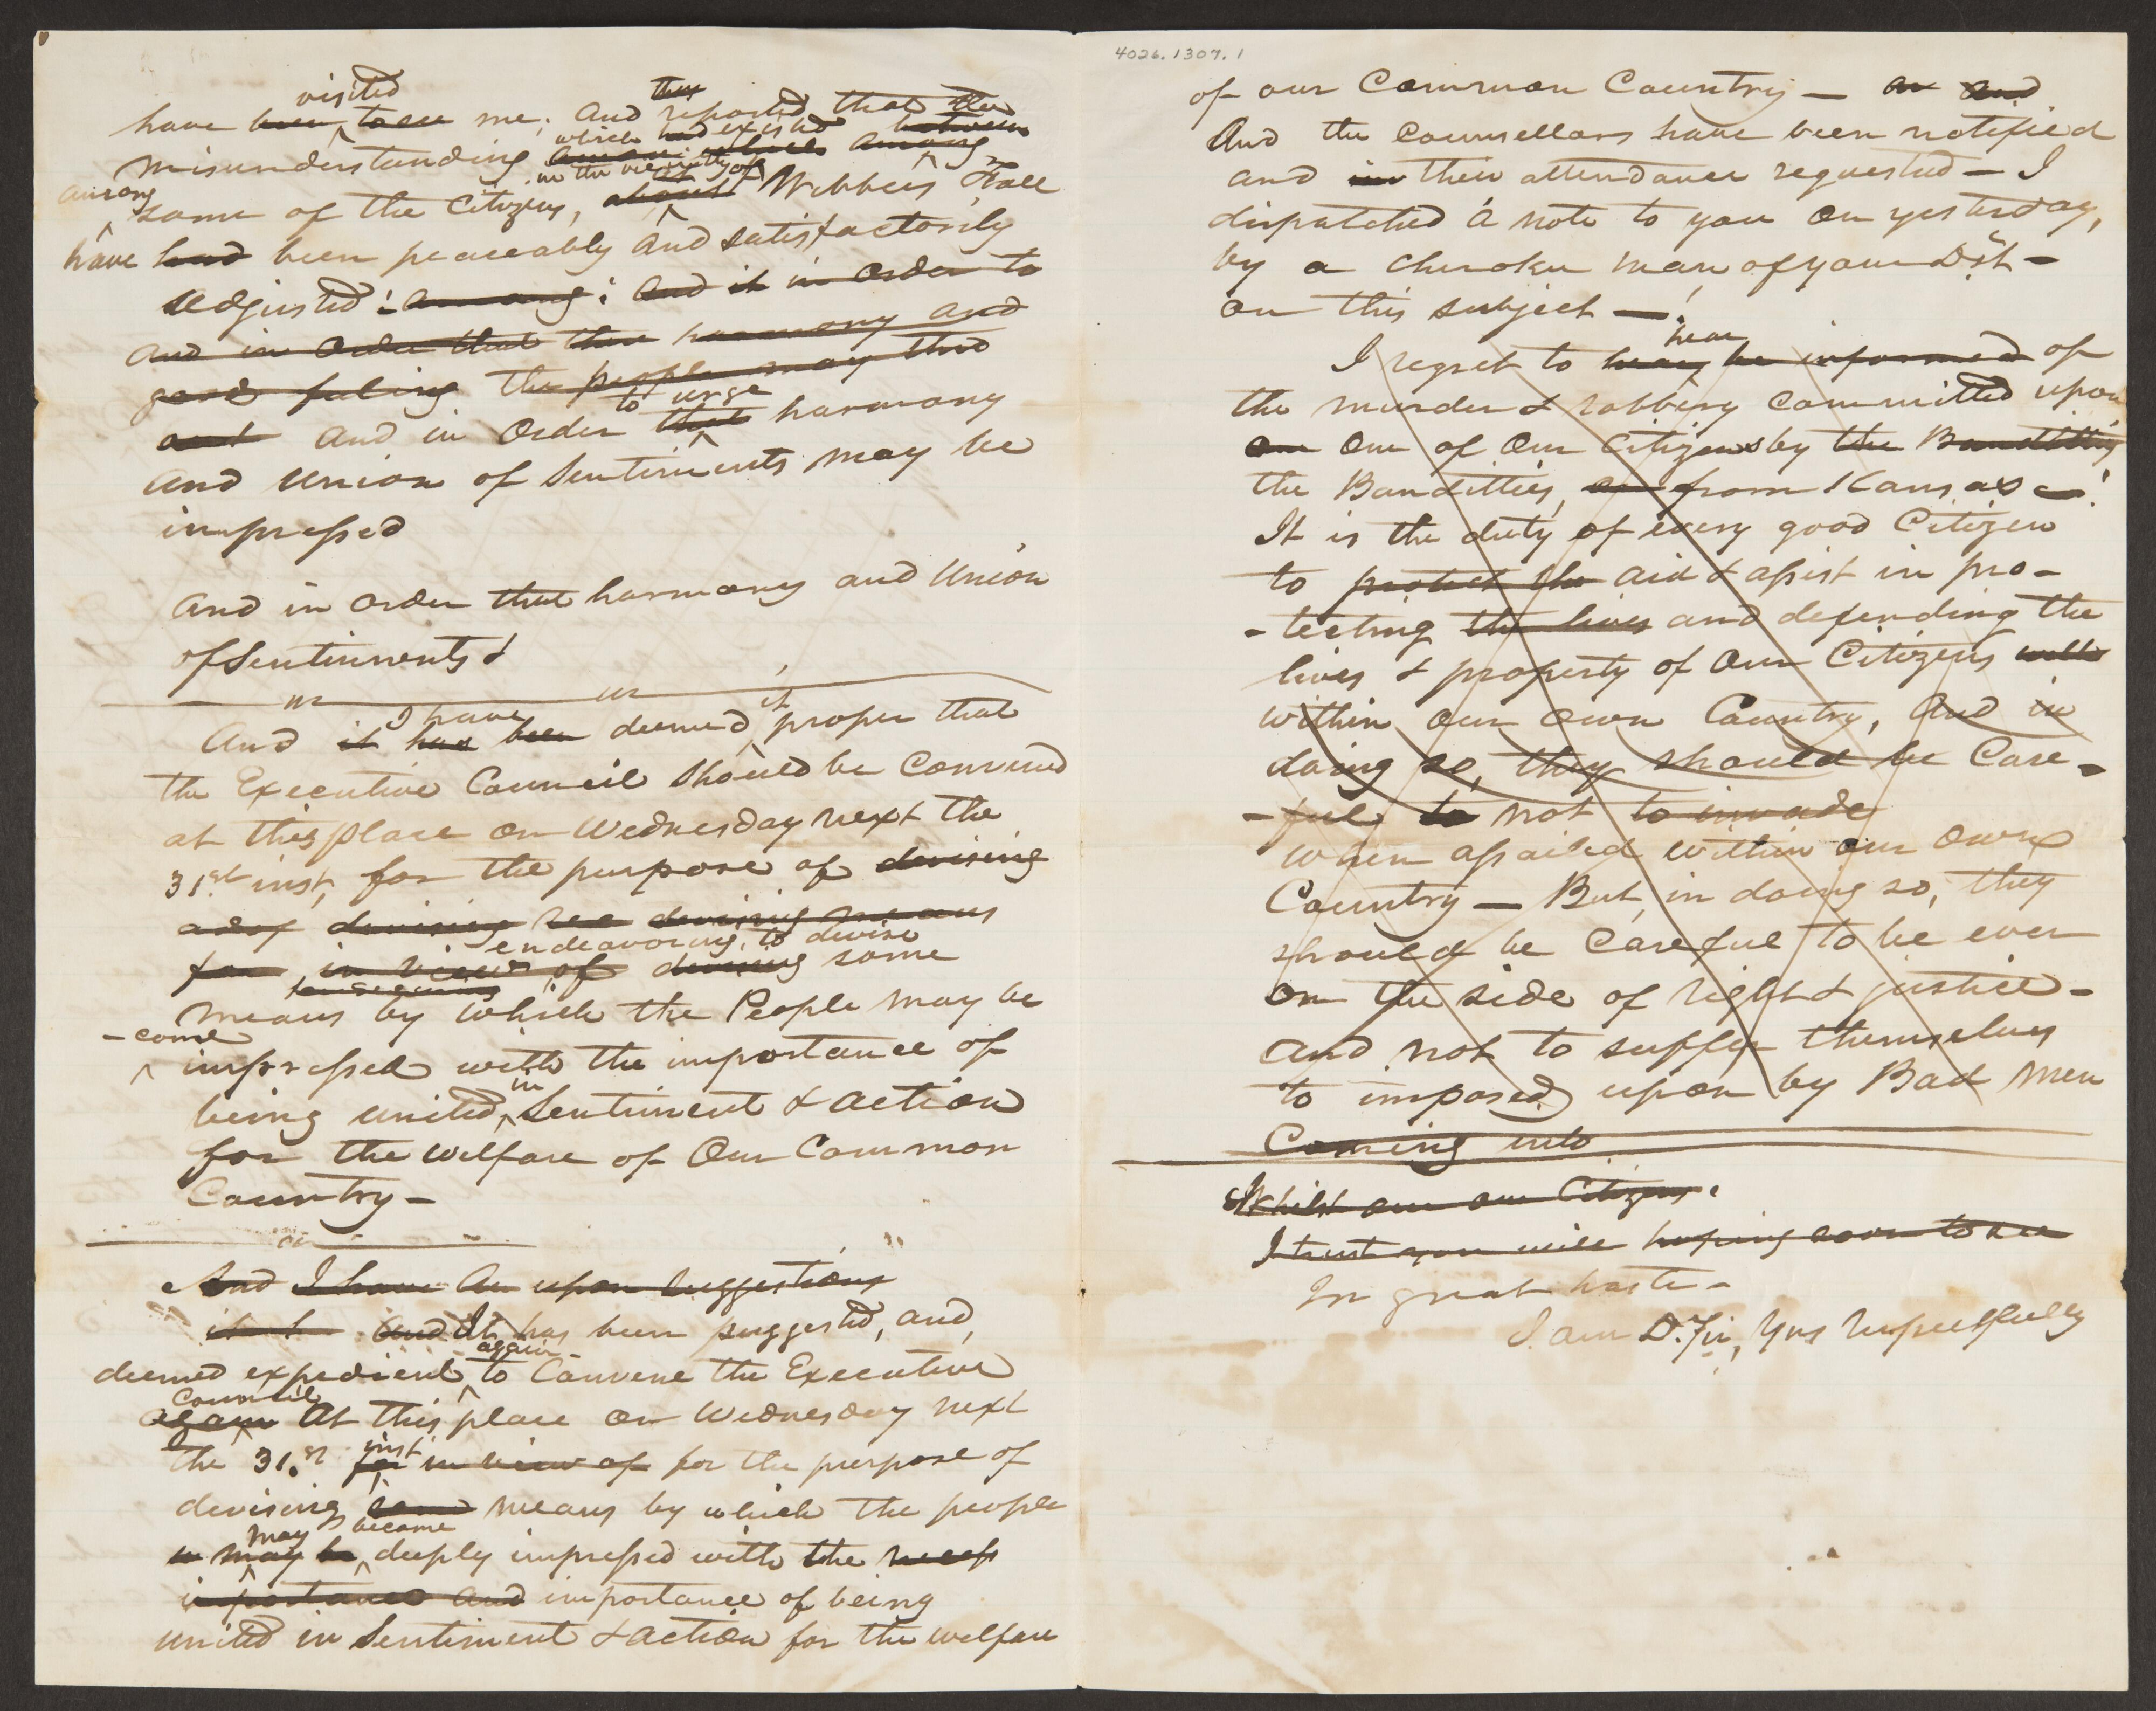 visited
have been to see me; and they reported that the
which had existed between
misunderstanding among
in the vicinity of
among some of the Citizens, about Webbers Fall
have had been peaceably and satisfactorily
adjusted: among; and it in order to
and in order that there harmony and
good feeling the people may thus
to urge
and in order that harmony
and Union of Sentiments may be
impressed
and in order that harmony and Union
of Sentiments &
or or
I have it
And it has been deemed proper that
the Executive Council should be Convened
at this place on Wednesday next the
31st inst, for the purpose of devising
devising devising means
endeavoring, to devise
for in view of devising some
means by which the People may be
-come
impressed with the importance of
in
being united, Sentiment & action
for the welfare of Our Common
Country —
or
And I have upon suggestions
and It has been suggested, and,
again
deemed expedient to Convene the Executive
Council
again At this place on Wednesday next
inst
the 31.st for in view of for the purpose of
devising some means by which the people
may become
may be deeply impressed with the
importance and importance of being
united in Sentiment & action for the welfare
4026.1307.1
of our Common Country — and
And the Counsellors have been notified
and in their attendance requested — I
dispatched a note to you on yesterday,
by a Cherokee man of your Dist —
on this subject —!
hear
I regret to hear be informed of
the murder & robbery Committed upon
on One of Our Citizens by the Banditties
the Banditties, from Kansas —!
It is the duty of every good Citizen
to protect the aid & assist in pro-
-tecting the lives and defending the
lives & property of Our Citizens
within our own Country, And in
doing so, they should be Care-
-ful to not to invade
when assailed within our own
Country — But, in doing so, they
should be Careful to be ever
on the side of right & justice —
and not to suffer themselves
to imposed upon by Bad Men
Coming into
Whilst our Citizens.
I trust you will hoping soon to see
In great haste —
I am D. Sir, Yrs respectfully